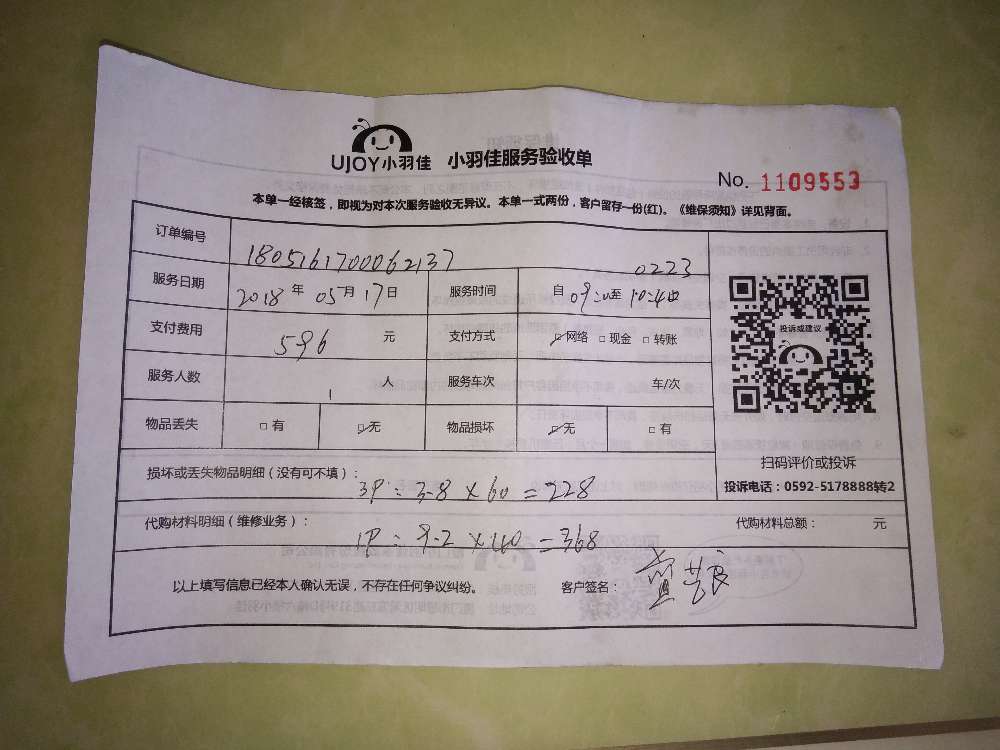 UJOY小羽佳 小羽佳服务验收单
No. 1109553
本单一经核签，即视为对本次服务验收无异议。本单一式两份，客户留存一份(红)。《维保须知》详见背面。
订单编号 1805161700062137 0223
服务日期 2018 年 05 月 17 日 服务时间 自 至
支付费用 596 元 支付方式 网络 现金 转账
投诉或建议
服务人数 1 人 服务车次 车/次
物品丢失 有 无 物品损坏 无 有
扫码评价或投诉
投诉电话：0592-5178888转2
损坏或丢失物品明细（没有可不填）： 3P = 3.8 × 60 = 228
代购材料明细（维修业务）： 1P = 9.2 × 40 = 368 代购材料总额： 元
以上填写信息已经本人确认无误，不存在任何争议纠纷。 客户签名：